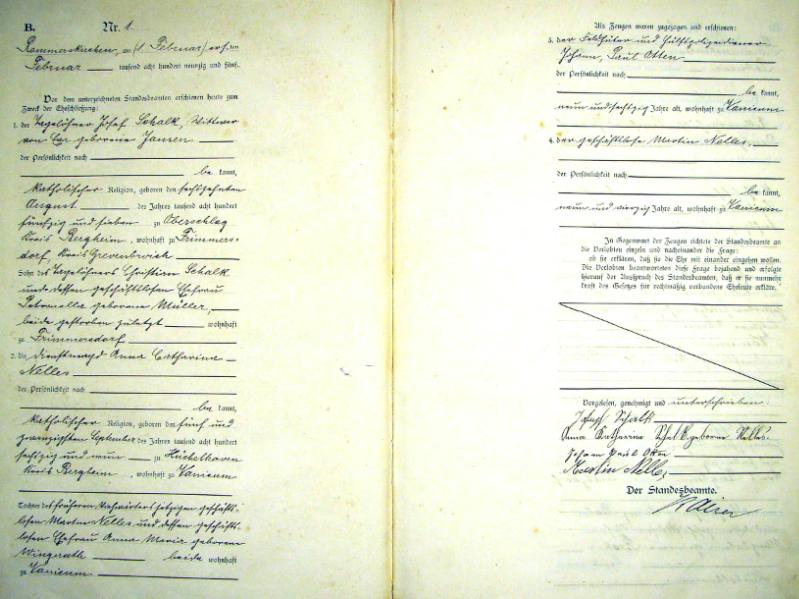 B. Nr. 1.
Rommerskirchen, am 1. Februar
Februar tausend acht hundert neunzig und fünf.
Vor dem unterzeichneten Standesbeamten erschienen heute zum
Zweck der Eheschließung:
1. der Tagelöhner Josef Schalk, Wittwer
von geborene Jansen
der Persönlichkeit nach
be kannt,
katholischer Religion, geboren den sechszehnten
August des Jahres tausend acht hundert
fünfzig und sieben zu Oberschlag
Kreis Bergheim, wohnhaft zu Frimmers-
dorf, Kreis Grevenbroich
Sohn des Tagelöhners Christian Schalk
und dessen geschäftslosen Ehefrau
Petronella geborene Müller,
beide gestorben zuletzt wohnhaft
zu Frimmersdorf
2. die Dienstmagd Anna Catharina
Nelles
der Persönlichkeit nach
be kannt,
katholischer Religion, geboren den fünf und
zwanzigsten September des Jahres tausend acht hundert
sechszig und neun zu Hüchelhoven
Kreis Bergheim, wohnhaft zu Vanicum
Tochter des früheren jetzigen geschäft-
losen Martin Nelles und dessen geschäft-
losen Ehefrau Anna Maria geborene
Wingerath beide wohnhaft
zu Vanicum
Als Zeugen waren zugezogen und erschienen:
3. der Feldhüter und Hülfspolizeidiener
Johann Paul Otten
der Persönlichkeit nach
be kannt,
neun und sechszig Jahre alt, wohnhaft zu Vanicum
4. der geschäftslose Martin Nelles
der Persönlichkeit nach
be kannt,
neun und vierzig Jahre alt, wohnhaft zu Vanicum
In Gegenwart der Zeugen richtete der Standesbeamte an
die Verlobten einzeln und nacheinander die Frage:
ob sie erklären, daß sie die Ehe mit einander eingehen wollen.
Die Verlobten beantworteten diese Frage bejahend und erfolgte
hierauf der Ausspruch des Standesbeamten, daß er sie nunmehr
kraft des Gesetzes für rechtmäßig verbundene Eheleute erkläre.
Vorgelesen, genehmigt und unterschrieben:
Joseph Schalk
Anna Katharina Schalk geborne Nelles
Johann Paul Otten
Martin Nelles
Der Standesbeamte.